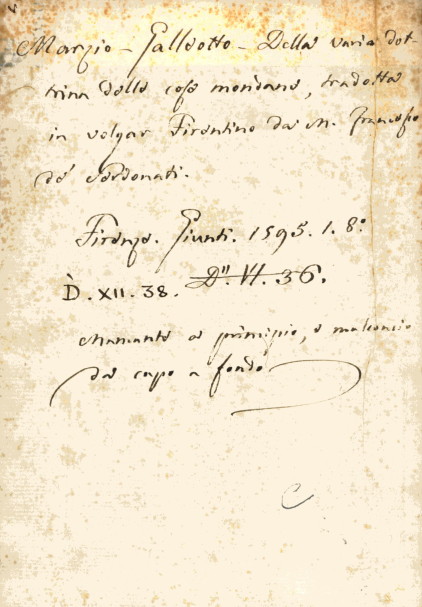 Marzio - Galleotto - Della varia dot-
trina delle cose mondane, tradotta
in volgar Fiorentino da M. Francesco
de' Serdonati.
Firenze. Giunti. 1595. 1. 8.°
D. XII. 38. D". VI. 36.
Mancante a principio, e malconcio
da capo a fondo
C